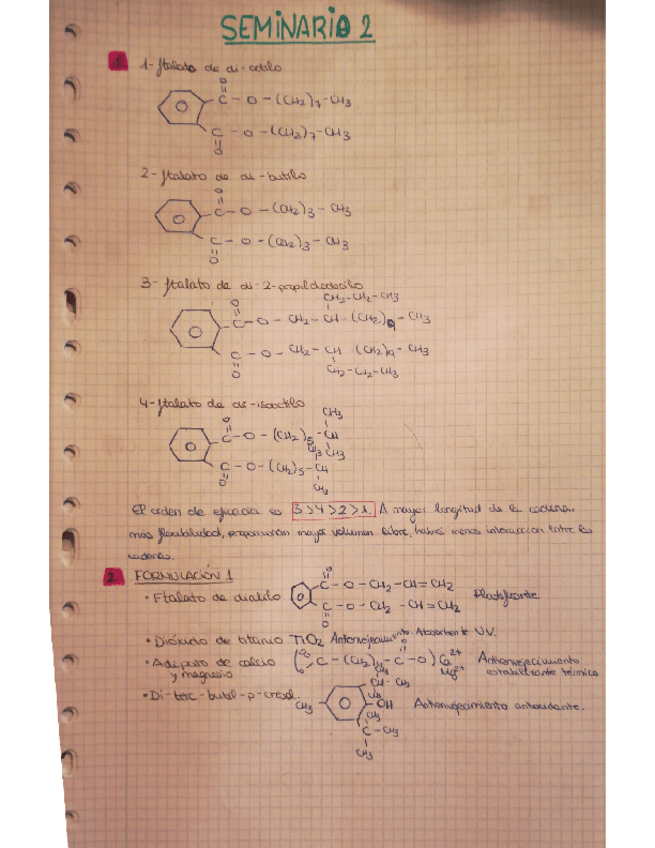 SEMINARIO 2
1. 1- ftalato de di-octilo
O
C - O - (CH2)7 - CH3
C - O - (CH2)7 - CH3
O
2- ftalato de di-butilo
O
C - O - (CH2)3 - CH3
C - O - (CH2)3 - CH3
O
3- ftalato de di-2-propildodecilo
CH2-CH2-CH3
O
C - O - CH2 - CH - (CH2)9 - CH3
C - O - CH2 - CH - (CH2)9 - CH3
O
CH2-CH2-CH3
4- ftalato de di-isooctilo
CH3
O
C - O - (CH2)5 - CH
CH3
C - O - (CH2)5 - CH
O
CH3
El orden de eficacia es 3>4>2>1. A mayor longitud de la cadena,
más flexibilidad, proporcionan mayor volumen libre, habrá menos interacción entre las
cadenas.
2. FORMULACIÓN 1
• Ftalato de dialilo
O
C - O - CH2 - CH = CH2
Plastificante
C - O - CH2 - CH = CH2
O
• Dióxido de titanio TiO2 Antienvejecimiento. Absorbente UV.
• Adipato de calcio
y magnesio
C - (CH2)4 - C - O
Ca2+
Mg2+
Antienvejecimiento
estabilizante térmico
• Di-terc-butil-p-cresol.
CH3
OH
Antienvejecimiento antioxidante.
CH3
C - CH3
CH3